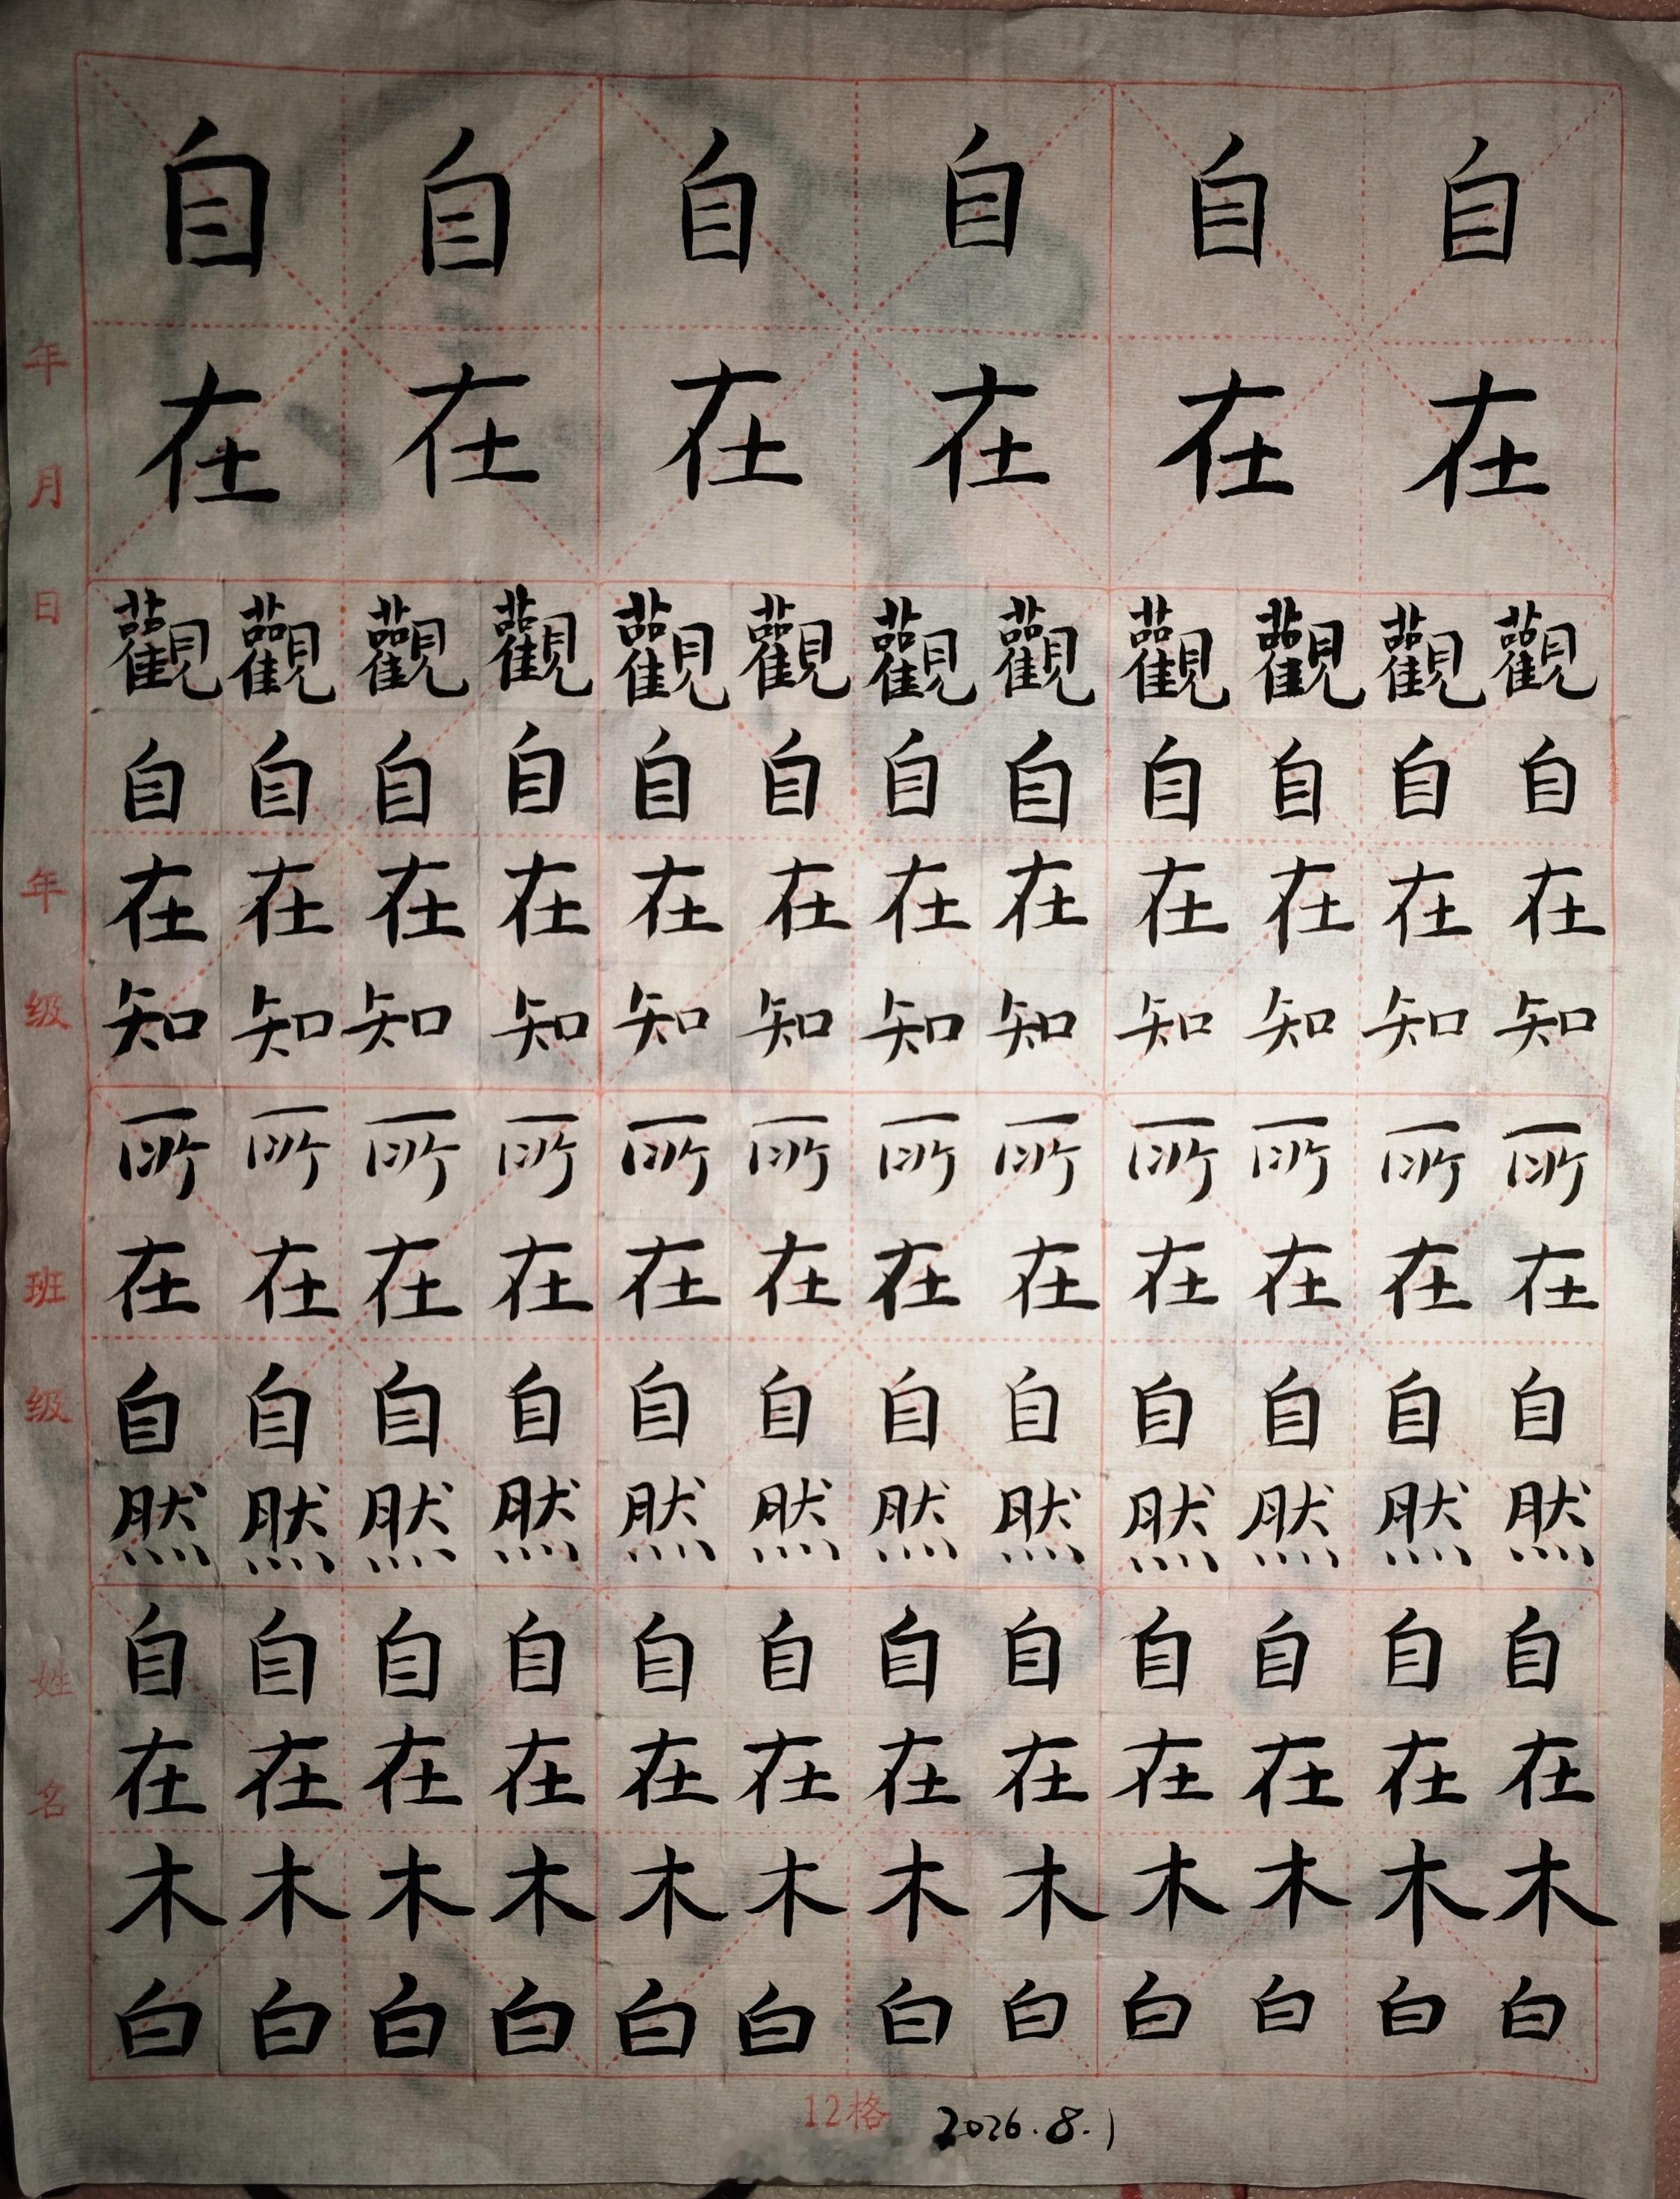 自自自自自自
在在在在在在
觀觀觀觀觀觀觀觀觀觀觀觀
自自自自自自自自自自自自
在在在在在在在在在在在在
知知知知知知知知知知知知
所所所所所所所所所所所所
在在在在在在在在在在在在
自自自自自自自自自自自自
然然然然然然然然然然然然
自自自自自自自自自自自自
在在在在在在在在在在在在
木木木木木木木木木木木木
白白白白白白白白白白白白
年月日
年级
班级
姓名
12格
2026.8.1